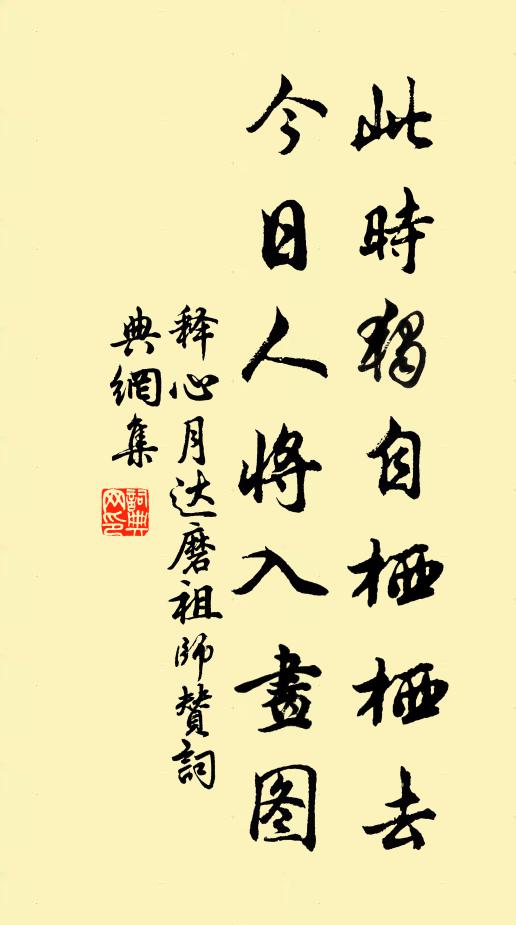 此時獨自栖栖去
今日人將入畫图
释心月达磨祖师赞詞
典網集
詞典
网印